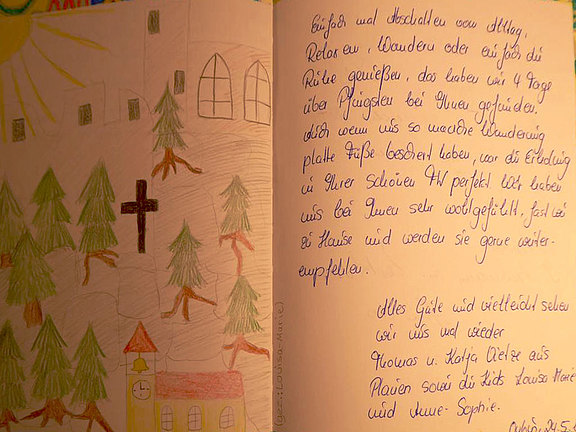 (gez.: Louisa Marie)
Einfach mal Abschalten vom Alltag,
Relaxen, Wandern oder einfach die
Ruhe genießen, das haben wir 4 Tage
über Pfingsten bei Ihnen gefunden.
Auch wenn uns so manche Wanderung
platte Füße beschert haben, war die Erholung
in Ihrer schönen FW perfekt. Wir haben
uns bei Ihnen sehr wohlgefühlt, fast wie
zu Hause und werden sie gerne weiter-
empfehlen.
Alles Gute und vielleicht sehen
wir uns mal wieder
Thomas u. Katja aus
Plauen sowie die Kids Louisa Marie
und Anne-Sophie.
Oybin, 24.5.